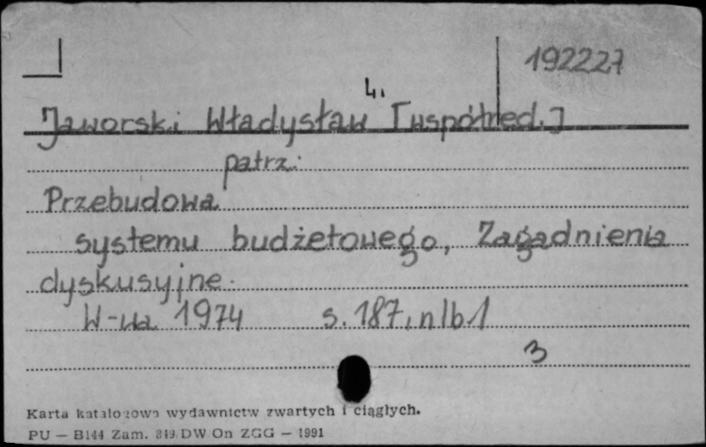 192227
Jaworski Władysław L. [współred.]
patrz:
Przebudowa
systemu budżetowego, Zagadnienia
dyskusyjne.
W-wa 1974 s. 187, nlb 1
3
Karta katalogowa wydawnictw zwartych i ciągłych.
PU — B144 Zam. 349/DW On ZGG — 1991